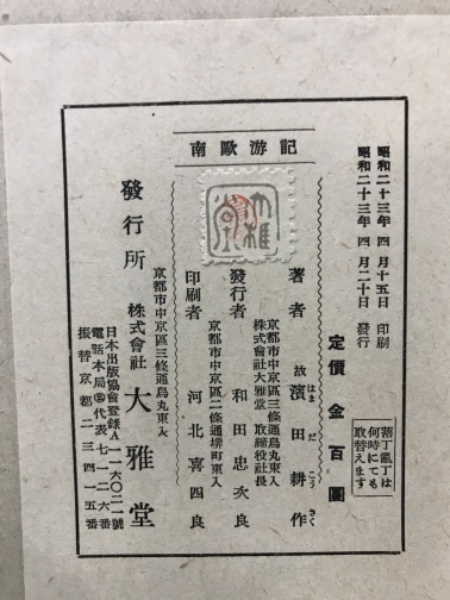 昭和二十三年四月十五日 印刷
昭和二十三年四月二十日 發行
定價金百圓
落丁亂丁は
何時にても
取替えます
南歐游記
大雅堂
著者 故 濱田耕作
はまだこうさく
京都市中京區三條通烏丸東入
株式會社大雅堂 取締役社長
發行者 和田忠次良
京都市中京區二條通堺町東入
印刷者 河北喜四良
京都市中京區三條通烏丸東入
發行所 株式會社 大雅堂
日本出版協會登錄A一一六〇二一號
電話本局代表七一二六番
振替京都二三四一五番